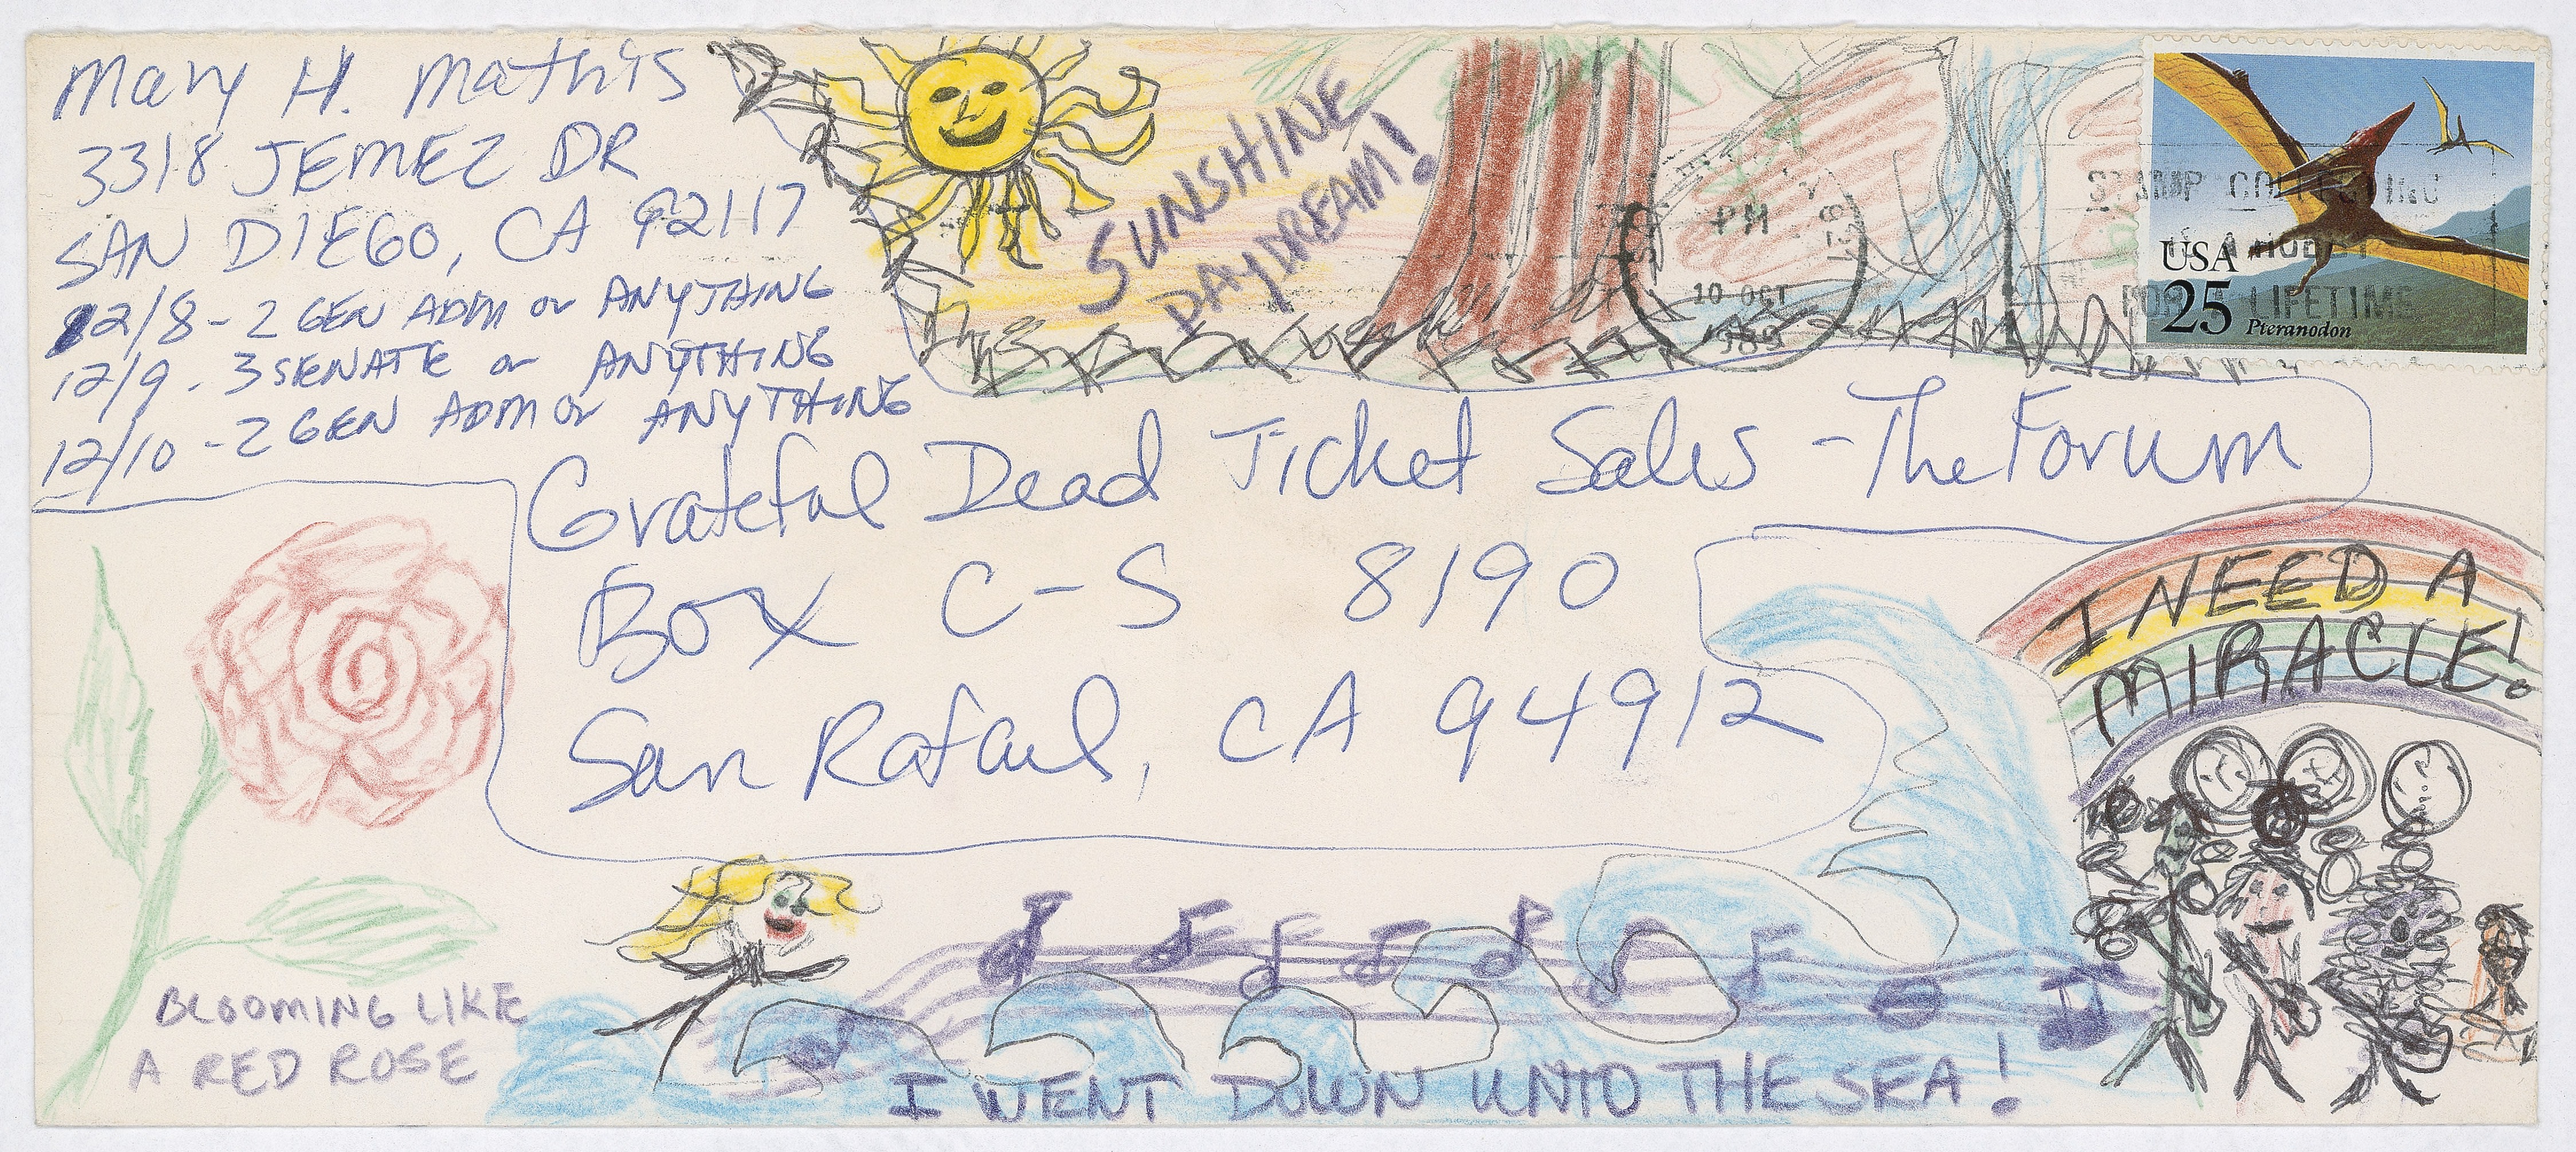 Mary H. Mathis
3318 JEMEZ DR
SAN DIEGO, CA 92117
12/8 - 2 GEN ADM or ANYTHING
12/9 - 3 SENATE or ANYTHING
12/10 - 2 GEN ADM or ANYTHING
SUNSHINE
DAYDREAM!
PM
10 OCT
1989
STAMP COLLECTING
IS A HOBBY
FOR A LIFETIME
USA
25 Pteranodon
Grateful Dead Ticket Sales - The Forum
Box C-S 8190
San Rafael, CA 94912
I NEED A
MIRACLE!
BLOOMING LIKE
A RED ROSE
I WENT DOWN UNTO THE SEA!